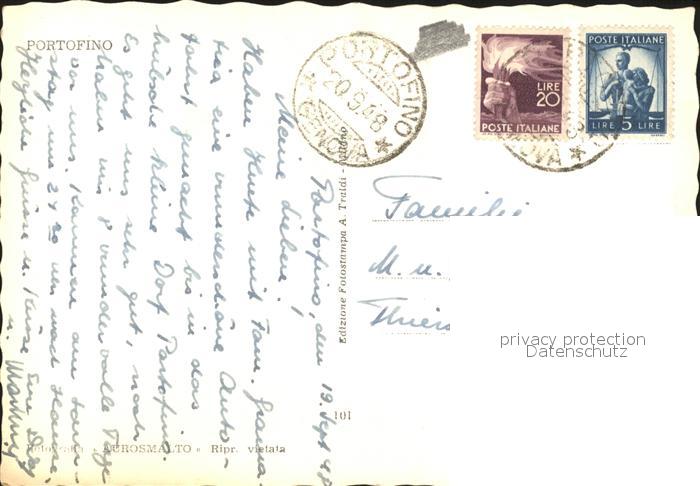 PORTOFINO
PORTOFINO
20.9.48
GENOVA
LIRE
20
POSTE ITALIANE
POSTE ITALIANE
LIRE 5 LIRE
NOVA
Portofino, den 19. Sept 48
Meine Lieben!
Haben heute mit Fam.
eine wunderschöne Auto-
fahrt gemacht bis in das
hübsche kleine Dorf Portofino.
Es geht uns sehr gut, noch
haben wir 8 wundervolle Tage
vor uns. Kommen am Sam-
stag um 21 20 Uhr nach Hause.
Herzliche Grüsse u. Küsse Eure
u.
Edizione Fotostampa A. Traldi - Milano
101
Fotografia « AEROSMALTO » Ripr. vietata
Familie
M. u.
Thiers
privacy protection
Datenschutz